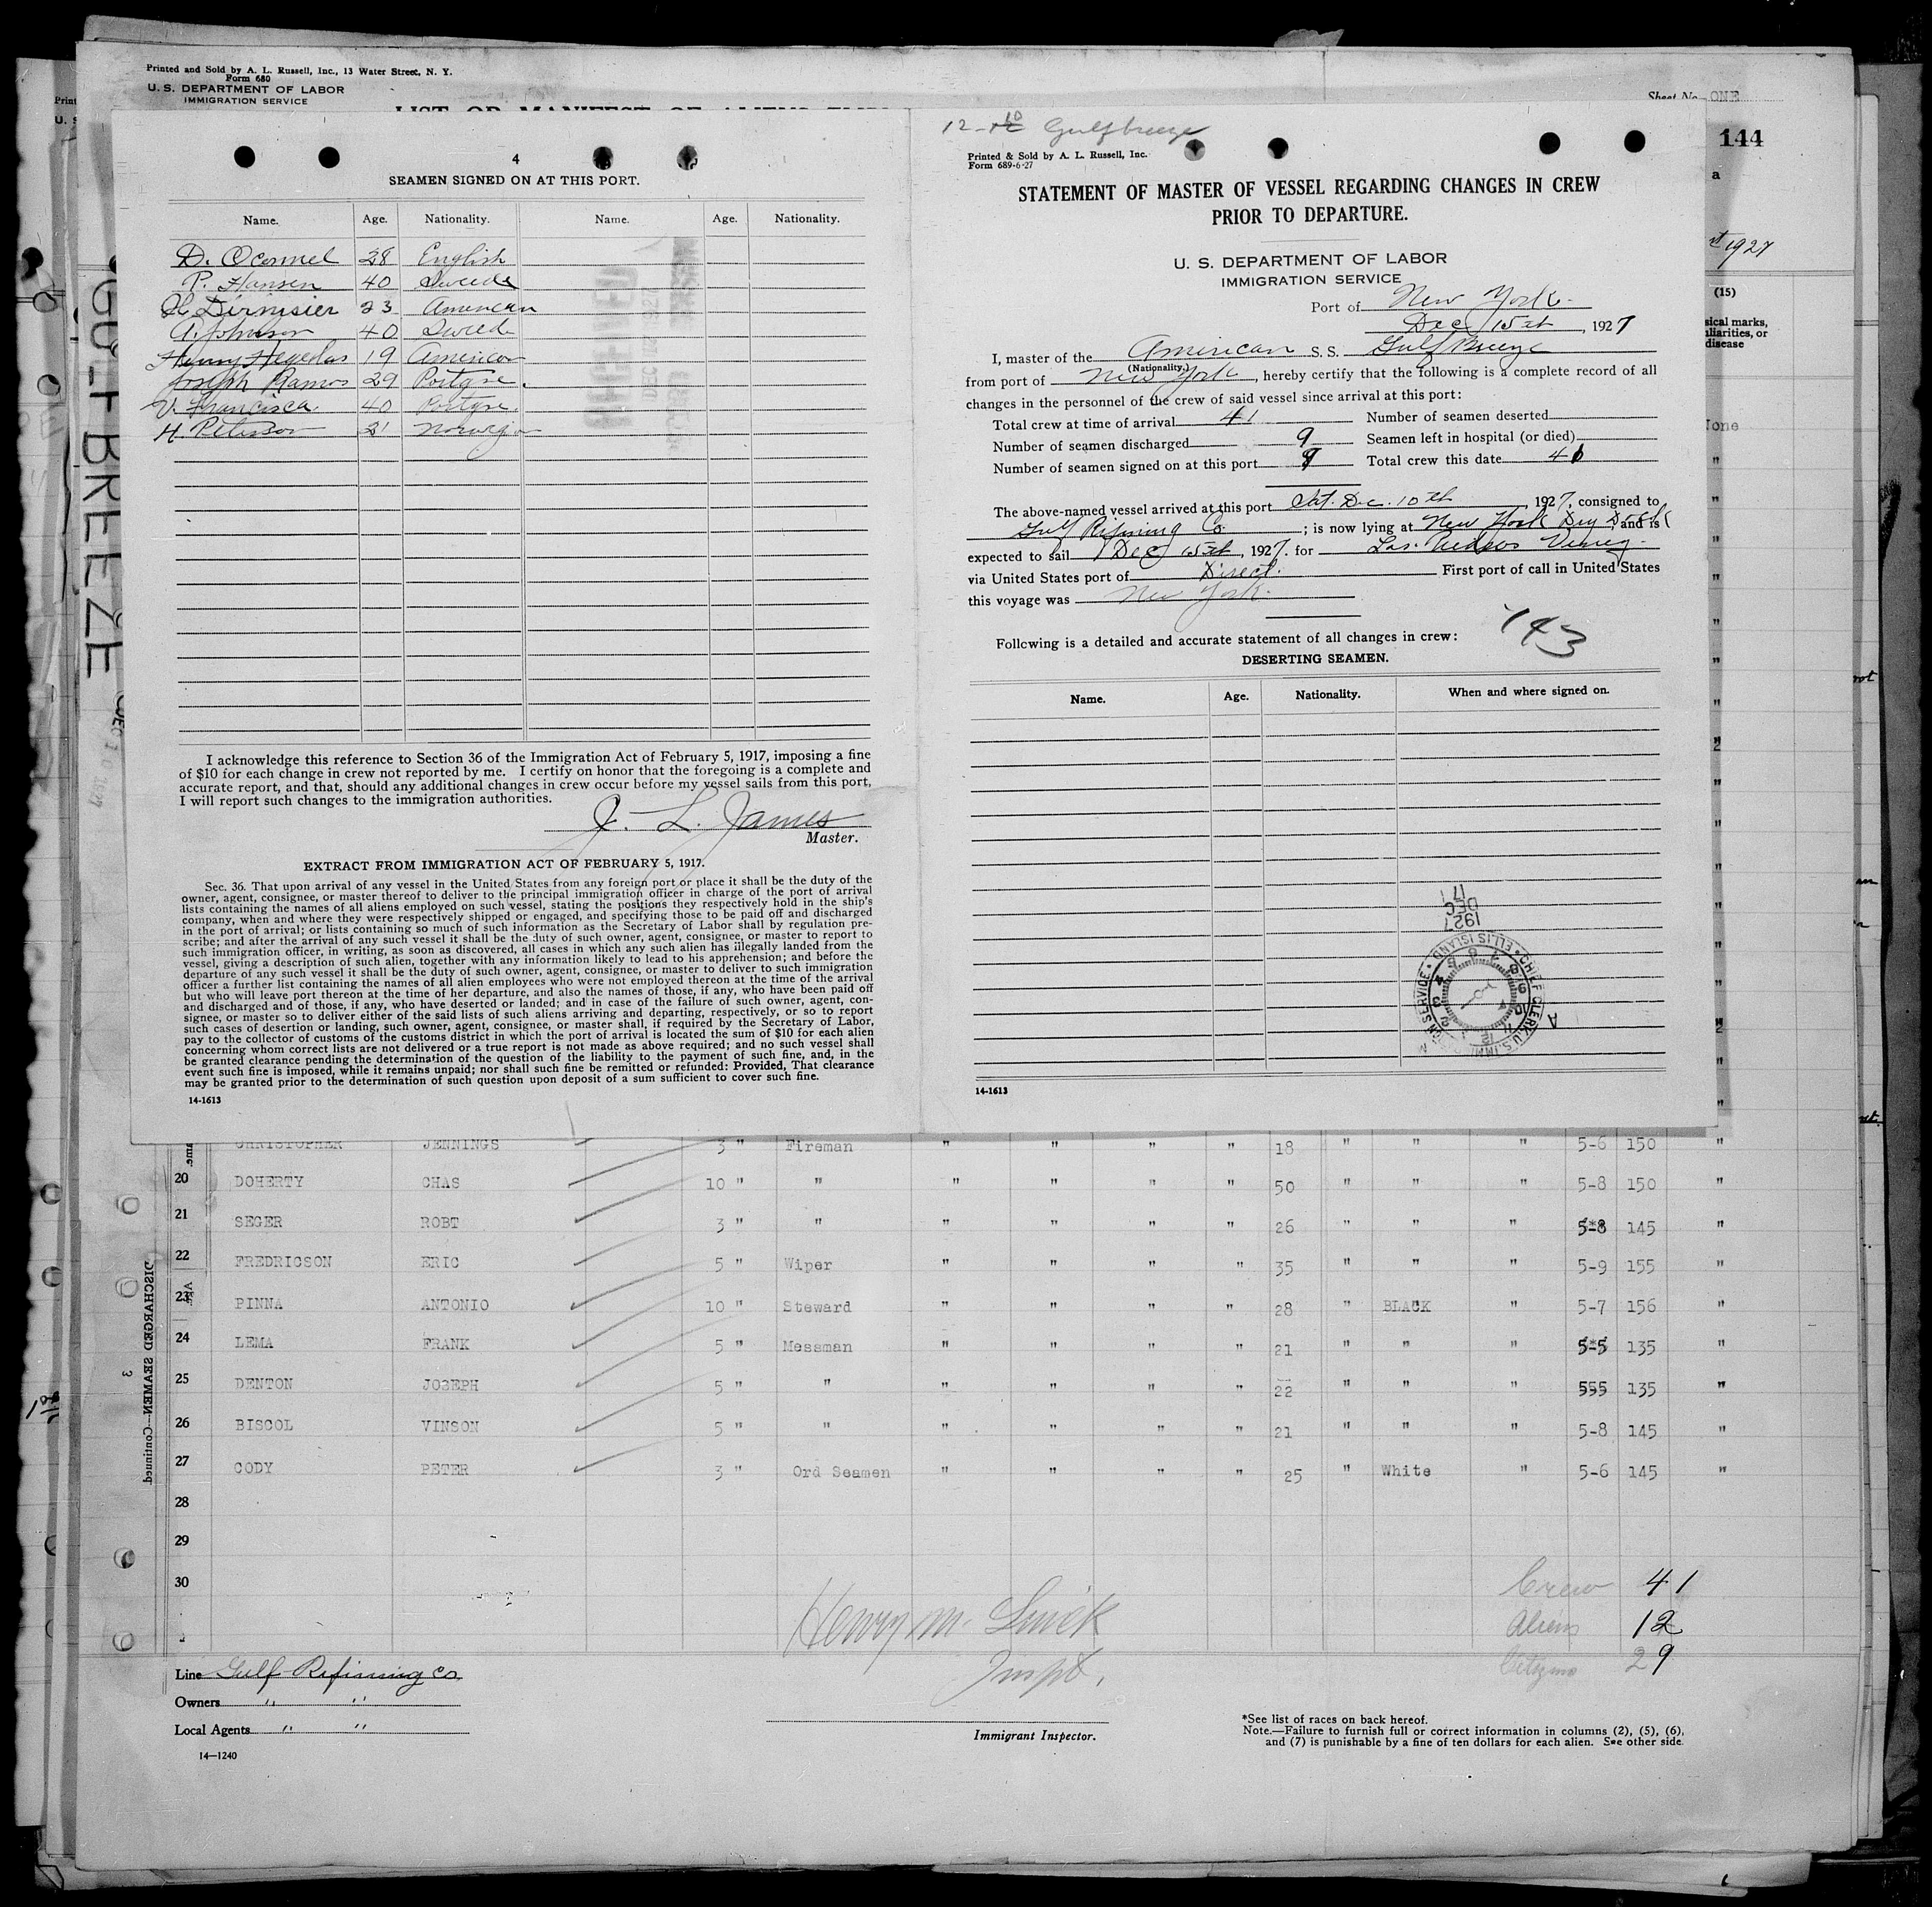 Printed and Sold by A. L. Russell, Inc., 13 Water Street, N. Y.
Form 680
U. S. DEPARTMENT OF LABOR
IMMIGRATION SERVICE
Sheet No. ONE
144
4
SEAMEN SIGNED ON AT THIS PORT.
Name. Age. Nationality. Name. Age. Nationality.
D. OConnel 28 English
P. Hansen 40 Swede
23 American
A. Johnson 40 Swede
Henry 19 American
Joseph Ramos 29 Portgse.
V. Francisca. 40 Portgse.
H. 21
I acknowledge this reference to Section 36 of the Immigration Act of February 5, 1917, imposing a fine
of $10 for each change in crew not reported by me. I certify on honor that the foregoing is a complete and
accurate report, and that, should any additional changes in crew occur before my vessel sails from this port,
I will report such changes to the immigration authorities.
J. L. James
Master.
EXTRACT FROM IMMIGRATION ACT OF FEBRUARY 5, 1917.
Sec. 36. That upon arrival of any vessel in the United States from any foreign port or place it shall be the duty of the
owner, agent, consignee, or master thereof to deliver to the principal immigration officer in charge of the port of arrival
lists containing the names of all aliens employed on such vessel, stating the positions they respectively hold in the ship's
company, when and where they were respectively shipped or engaged, and specifying those to be paid off and discharged
in the port of arrival; or lists containing so much of such information as the Secretary of Labor shall by regulation pre-
scribe; and after the arrival of any such vessel it shall be the duty of such owner, agent, consignee, or master to report to
such immigration officer, in writing, as soon as discovered, all cases in which any such alien has illegally landed from the
vessel, giving a description of such alien, together with any information likely to lead to his apprehension; and before the
departure of any such vessel it shall be the duty of such owner, agent, consignee, or master to deliver to such immigration
officer a further list containing the names of all alien employees who were not employed thereon at the time of the arrival
but who will leave port thereon at the time of her departure, and also the names of those, if any, who have been paid off
and discharged and of those, if any, who have deserted or landed; and in case of the failure of such owner, agent, con-
signee, or master so to deliver either of the said lists of such aliens arriving and departing, respectively, or so to report
such cases of desertion or landing, such owner, agent, consignee, or master shall, if required by the Secretary of Labor,
pay to the collector of customs of the customs district in which the port of arrival is located the sum of $10 for each alien
concerning whom correct lists are not delivered or a true report is not made as above required; and no such vessel shall
be granted clearance pending the determination of the question of the liability to the payment of such fine, and, in the
event such fine is imposed, while it remains unpaid; nor shall such fine be remitted or refunded: Provided, That clearance
may be granted prior to the determination of such question upon deposit of a sum sufficient to cover such fine.
14-1613
12-10 Gulfbreeze
Printed & Sold by A. L. Russell, Inc.
Form 689-6-27
STATEMENT OF MASTER OF VESSEL REGARDING CHANGES IN CREW
PRIOR TO DEPARTURE.
U. S. DEPARTMENT OF LABOR
IMMIGRATION SERVICE
Port of New York.
Dec 15th, 1927
I, master of the American S. S. Gulf Breeze
(Nationality.)
from port of New York, hereby certify that the following is a complete record of all
changes in the personnel of the crew of said vessel since arrival at this port:
Total crew at time of arrival 41 Number of seamen deserted
Number of seamen discharged 9 Seamen left in hospital (or died)
Number of seamen signed on at this port 9 Total crew this date 41
The above-named vessel arrived at this port Sat. Dec. 10th, 1927, consigned to
Gulf Refining Co.; is now lying at New York Dry Dock, and is
expected to sail Dec 15th, 1927. for Las
via United States port of Direct. First port of call in United States
this voyage was New York.
143
Following is a detailed and accurate statement of all changes in crew:
DESERTING SEAMEN.
Name. Age. Nationality. When and where signed on.
1927
DEC
17
CHIEF CLERK, U.S. IMMIGRATION SERVICE • ELLIS ISLAND •
14-1613
1927
(15)
None
GULFBREEZE
DISCHARGED SEAMEN—Continued.
3
CHRISTOPHER JENNINGS 3 " Fireman " " " " 18 " " " 5-6 150 "
20 DOHERTY CHAS 10 " " " " " " 50 " " " 5-8 150 "
21 SEGER ROBT 3 " " " " " " 26 " " " 5-8 145 "
22 FREDRICSON ERIC 5 " Wiper " " " " 35 " " " 5-9 155 "
23 PINNA ANTONIO 10 " Steward " " " " 28 " BLACK " 5-7 156 "
24 LEMA FRANK 5 " Messman " " " " 21 " " " 5-5 135 "
25 DENTON JOSEPH 5 " " " " " " 22 " " " 555 135 "
26 BISCOL VINSON 5 " " " " " " 21 " " " 5-8 145 "
27 CODY PETER 3 " Ord Seamen " " " " 25 " White " 5-6 145 "
28
29
30
Crew 41
Aliens 12
Citizens 29
Henry M.
Inspt.
Line Gulf Refining Co
Owners " "
Local Agents " "
14—1240
Immigrant Inspector.
*See list of races on back hereof.
Note.—Failure to furnish full or correct information in columns (2), (5), (6),
and (7) is punishable by a fine of ten dollars for each alien. See other side.